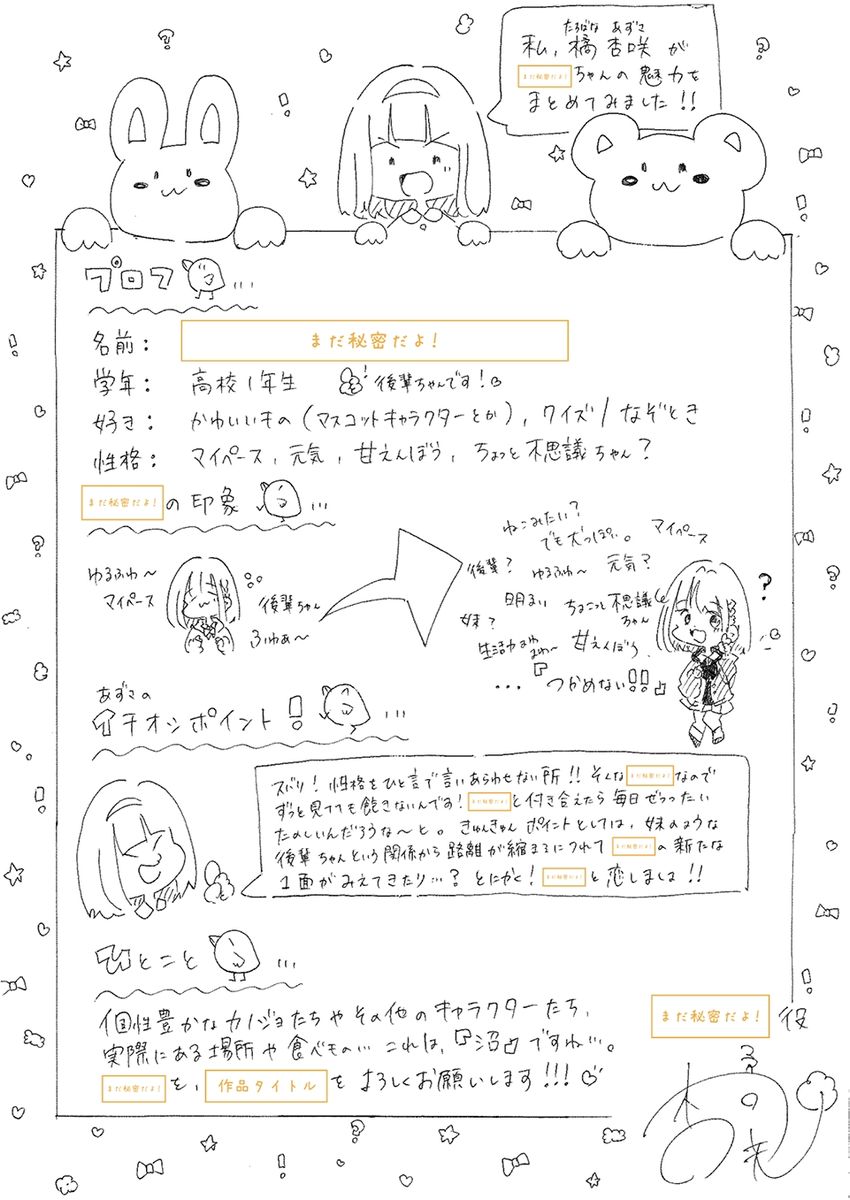 たちばな あずさ
私、橘 杏咲 が
まだ秘密だよ!ちゃんの魅力を
まとめてみました!!
プロフ ...
名前: まだ秘密だよ!
学年: 高校1年生 後輩ちゃんです!
好き: かわいいもの(マスコットキャラクターとか), クイズ/なぞとき
性格: マイペース, 元気, 甘えんぼう, ちょっと不思議ちゃん?
まだ秘密だよ!の印象 ...
ゆるふわ〜
マイペース
後輩ちゃん
ふゆぁ〜
ねこみたい?
でも犬っぽい。 マイペース
後輩? ゆるふわ〜 元気?
明るい ちょこっと不思議ちゃん
妹?
生活力 甘えんぼう
... 『つかめない!!』
?
あずさの
イチオシポイント! ...
ズバリ! 性格をひと言で言いあらわせない所!! そんなまだ秘密だよ!なので
ずっと見てても飽きないんです! まだ秘密だよ!と付き合えたら毎日ぜっったい
たのしいんだろうな〜と。 きゅんきゅんポイントとしては, 妹のような
後輩ちゃんという関係から距離が縮まるにつれてまだ秘密だよ!の新たな
1面がみえてきたり…? とにかく! まだ秘密だよ!と恋しましょ!!
ひとこと ...
個性豊かなカノジョたちやその他のキャラクターたち,
実際にある場所や食べもの… これは,『沼』ですね…。
まだ秘密だよ!を, 作品タイトルをよろしくお願いします!!!
まだ秘密だよ!役